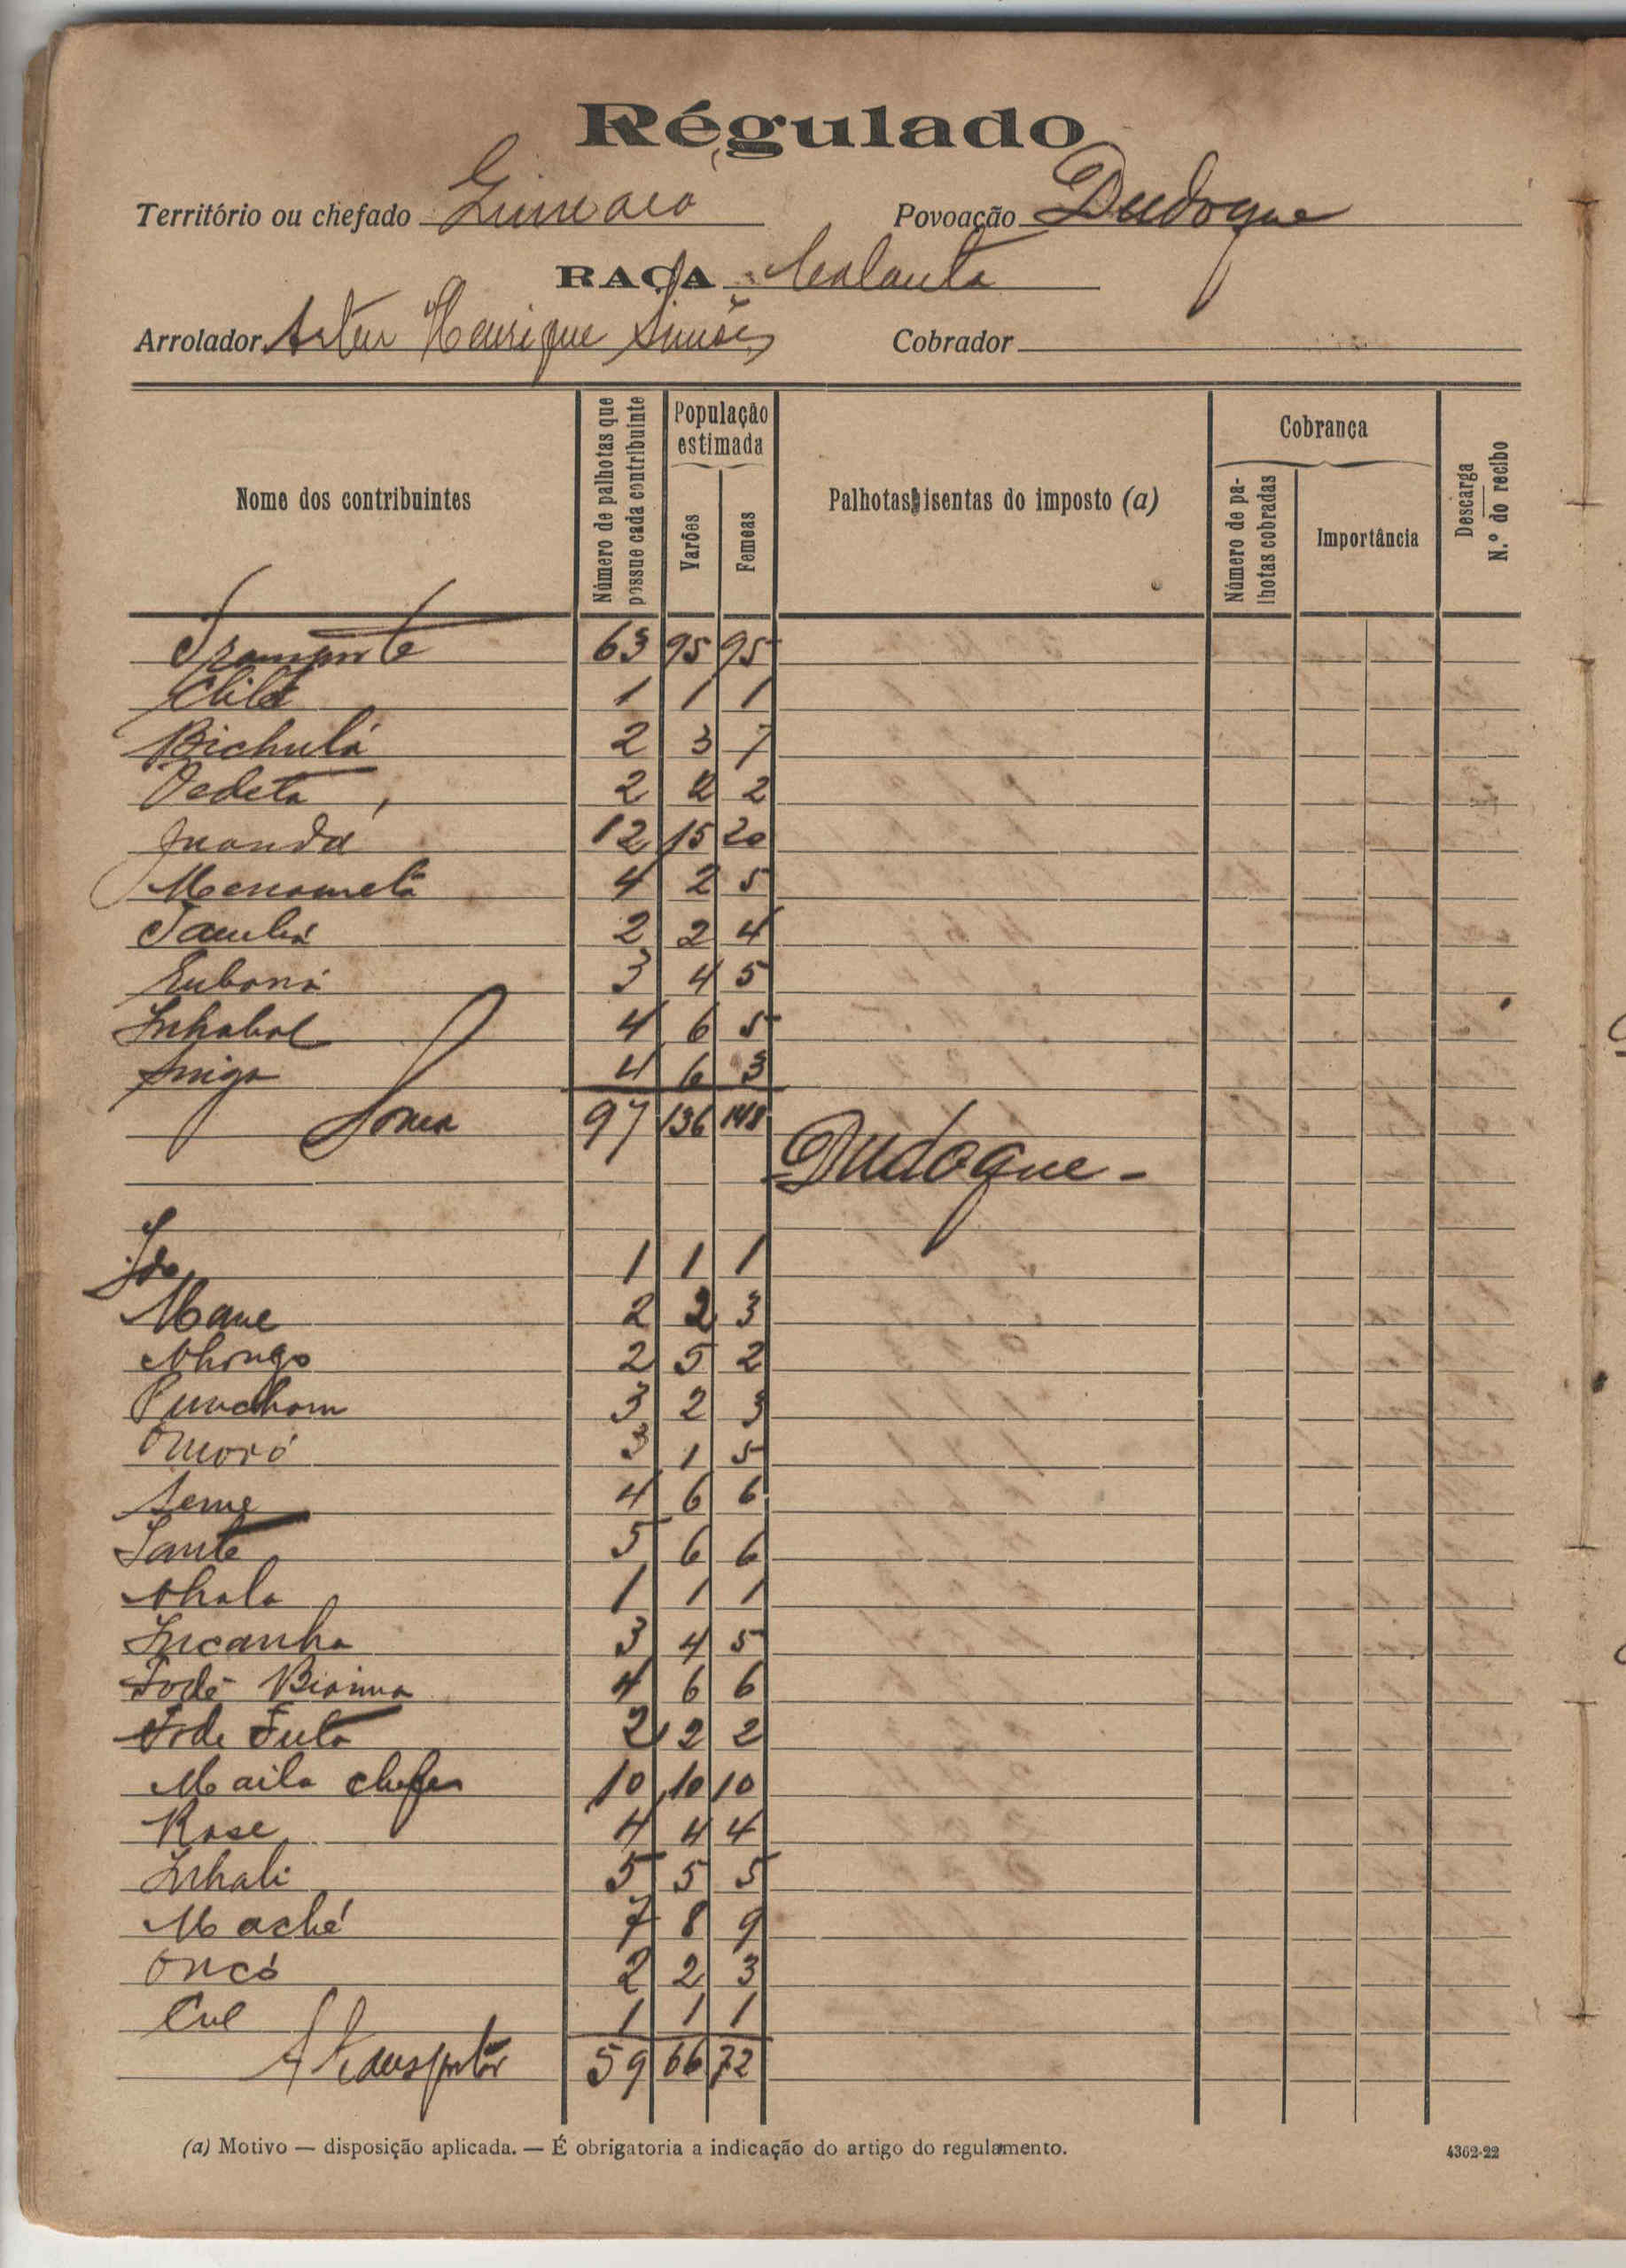 Régulado
Território ou chefado
Povoação Dudoque
RAÇA Balanta
Arrolador Artur Henrique Simões Cobrador
Nome dos contribuintes
Número de palhotas que possue cada contribuinte
População estimada
Varões
Femeas
Palhotas isentas do imposto (a)
Cobrança
Número de palhotas cobradas
Importância
Descarga
N.º do recibo
Transporte 63 95 95
1 1 1
Bichulá 2 3 7
Dedeta 2 2 2
Juanda 12 15 20
4 2 5
2 2 4
3 4 5
Inhabal 4 6 5
4 6 3
Soma 97 136 148
Dudoque -
1 1 1
Mane 2 2 3
Nhongo 2 5 2
3 2 3
Omoró 3 1 5
Seme 4 6 6
Sante 5 6 6
Nhala 1 1 1
Incanha 3 4 5
Fodé 4 6 6
Fode Futa 2 2 2
Maila chefe 10 10 10
Rose 4 4 4
Inhali 5 5 5
Maché 7 8 9
Oncó 2 2 3
Cul 1 1 1
A transportar 59 66 72
(a) Motivo — disposição aplicada. — É obrigatoria a indicação do artigo do regulamento.
4362-22